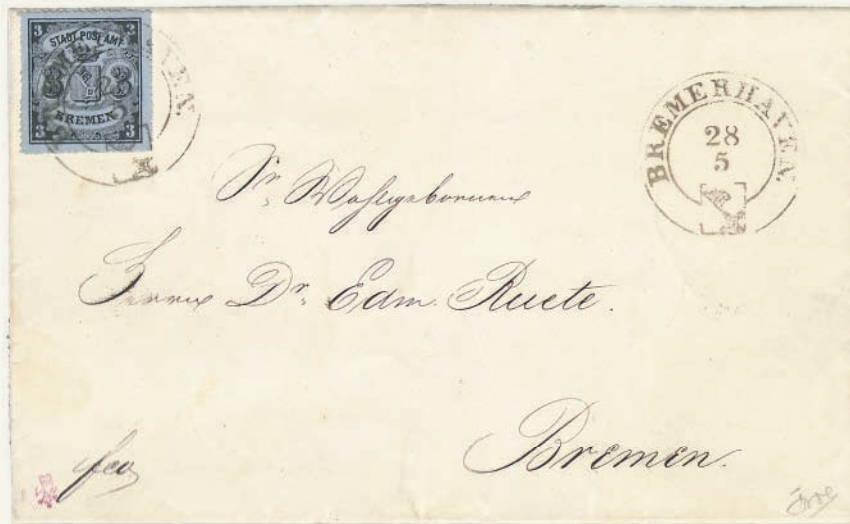 3 3
STADT POST AMT
3 3
BREMEN
3 3
BREMERHAVEN.
28
5
Sr. Wohlgeborenen
Herrn Dr. Edm. Ruete.
Bremen.
fco